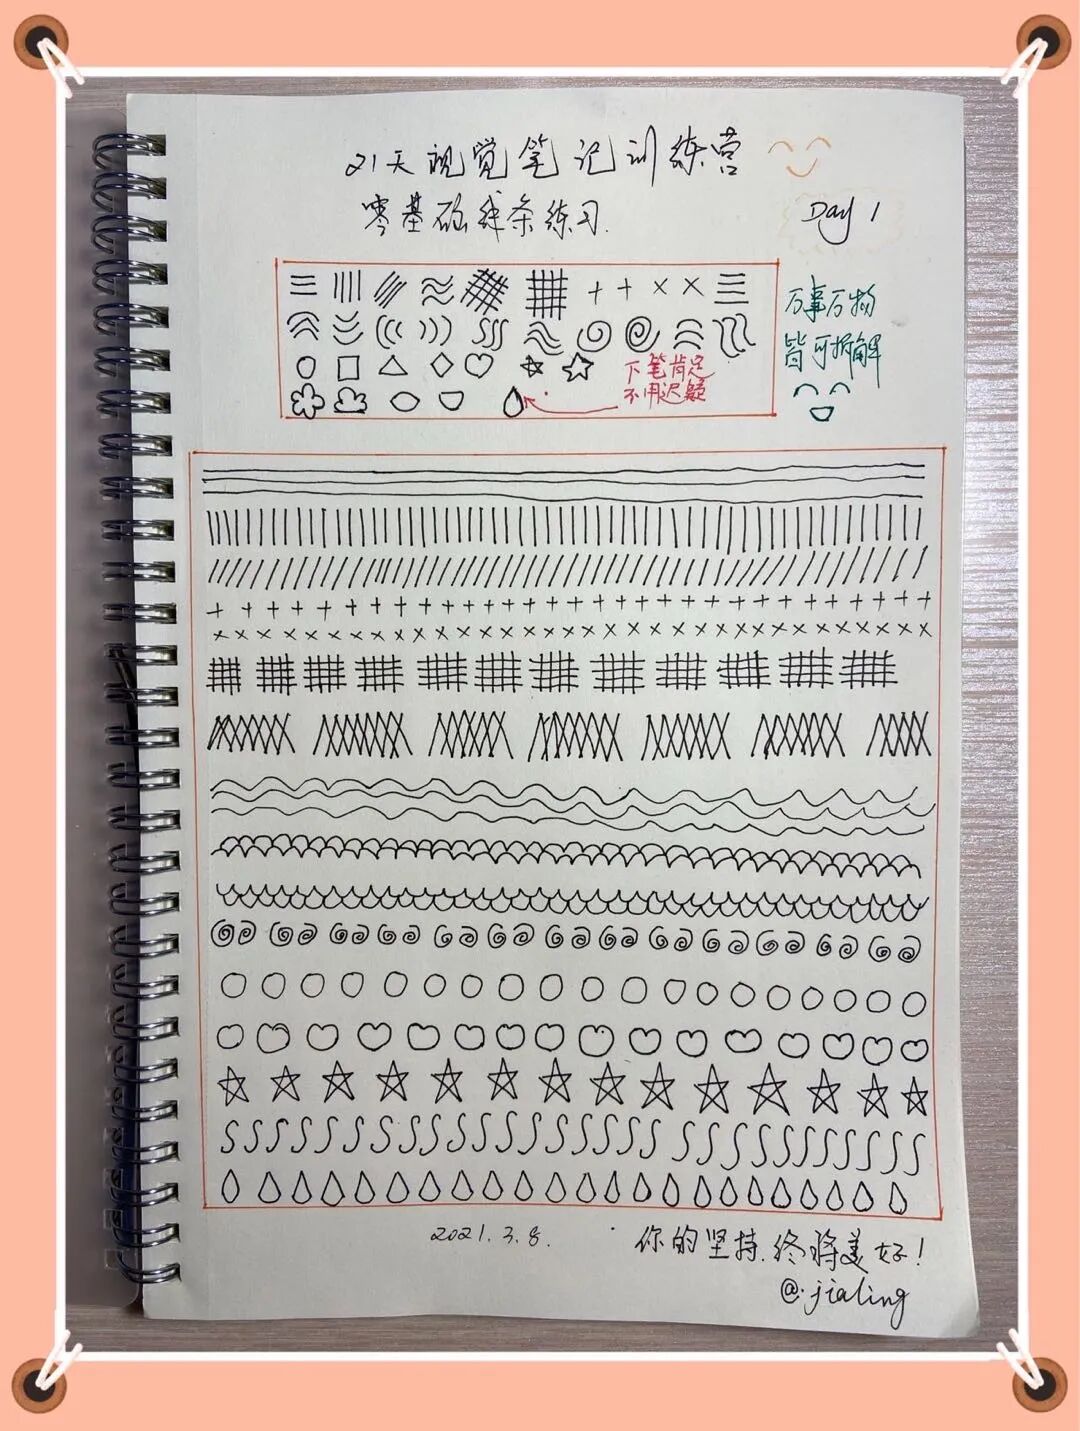 21天视觉笔记训练营
零基础线条练习.
Day 1
万事万物
皆可拆解
下笔肯定
不用迟疑
2021.3.8.
你的坚持.终将美好!
@.jialing